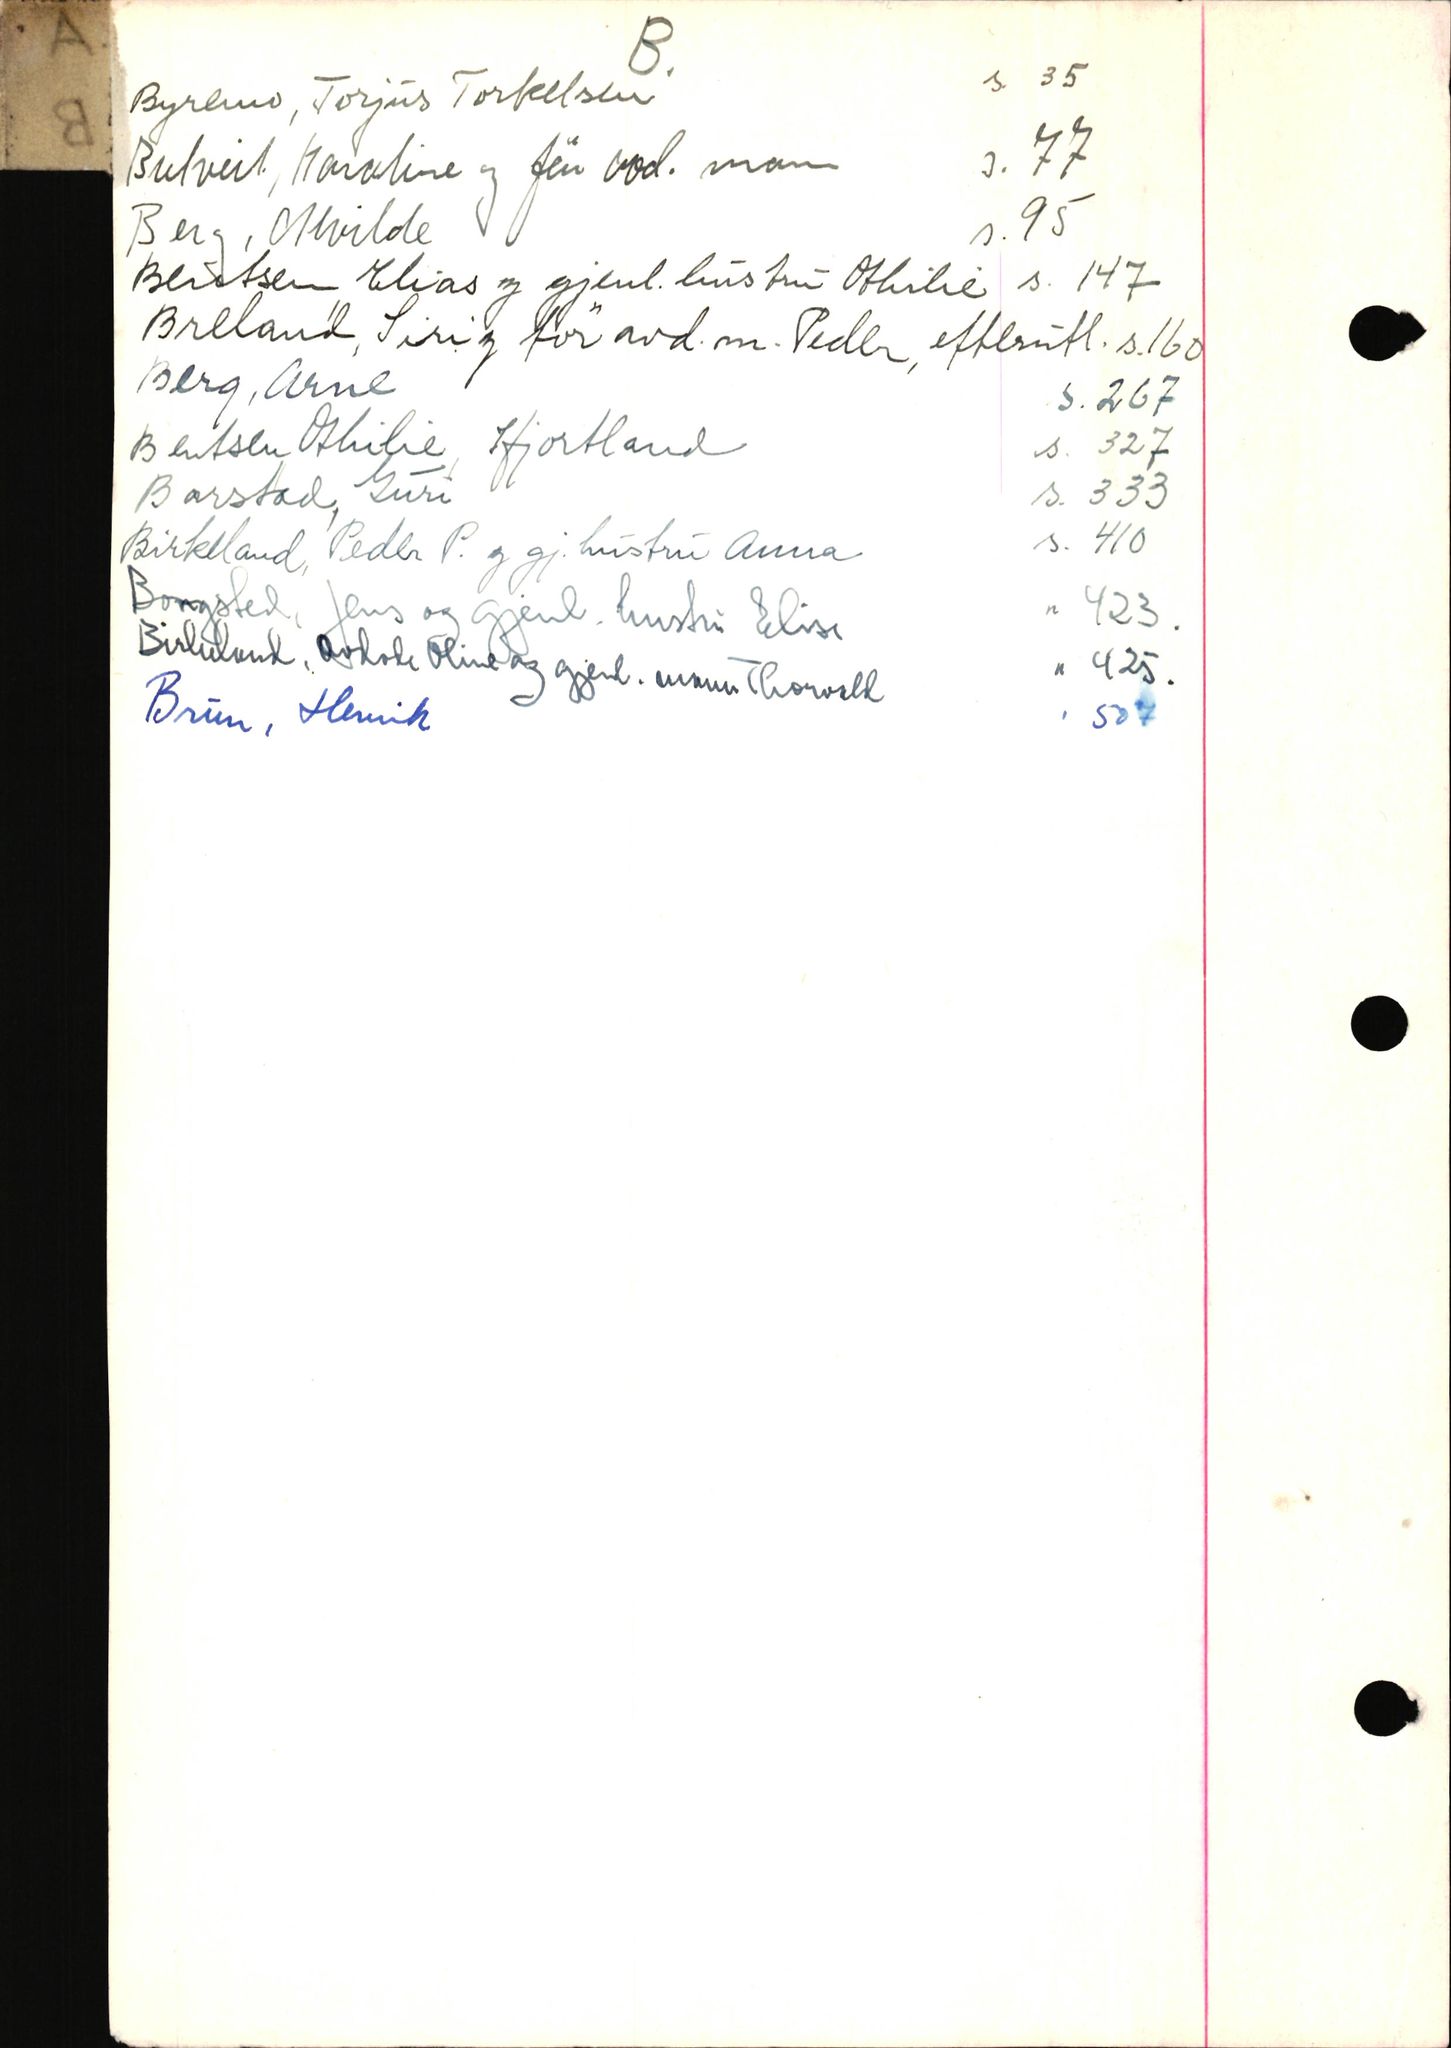 B.
Byremo, Torjus Torkelsen s. 35
Karoline og før avd. mann s. 77
Berg, Alvilde s. 95
Bentsen Elias og gjenl. hustru Othilie s. 147
Breland, Siri og før avd. m. Peder, efterutl. s. 160
Berg, Arne s. 267
Bentsen Othilie, Hjortland s. 327
Barstad, Guri s. 333
Birkeland, Peder P. og gj. hustru Anna s. 410
Bongsted, Jens og gjenl. hustru Elise " 423.
Birkeland, avdøde Oline og gjenl. mann Thorvald " 425.
Brun, Henrik " 507